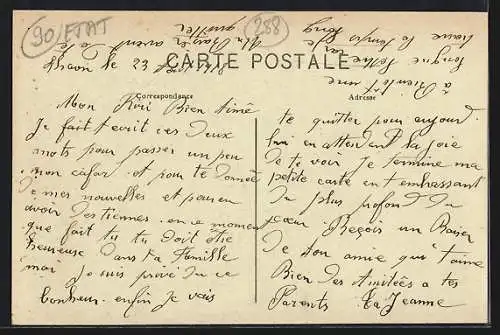 90/ETAT
288
CARTE POSTALE
Correspondance
Adresse
le 23 1918
Mon Riri Bien aimé
Je fait écrit ces deux
mots pour passer un peu
mon cafar et pour te donnée
de mes nouvelles et pour en
avoir des tiennes en ce moment
que fait tu tu doit être
heureuse dans ta famille
moi je suis privé du ce
bonheur enfin je vais
te quitter pour aujourd
hui en attendent la joie
de te voir je termine ma
petite carte en t embrassant
du plus profond du
cœur Reçois un Baiser
de ton amie qui t'aime
Bien des amitiées a tes
Parents ta Jeanne
à Bientôt une
longue lettre
le temps long
un Baiser avent de te
quitter